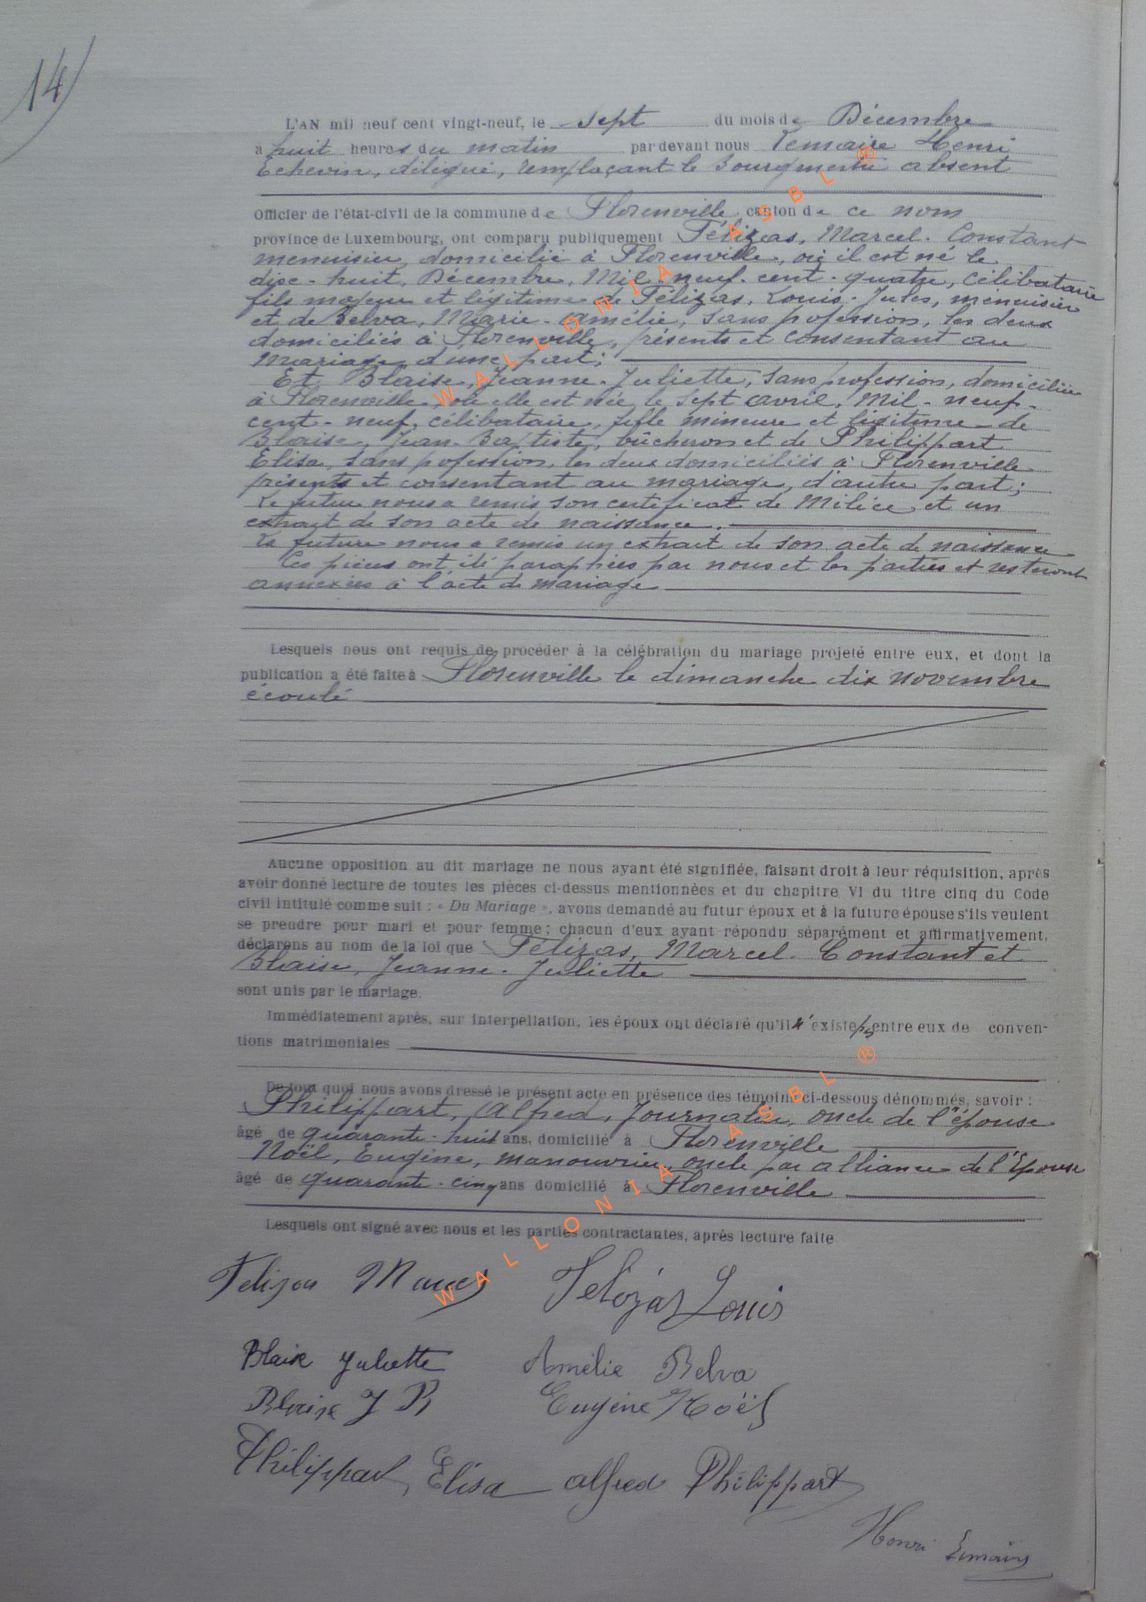 14)
L'AN mil neuf cent vingt-neuf, le sept du mois de Décembre
à huit heures du matin par devant nous Lemaire Henri
Echevin, délégué, remplaçant le Bourgmestre absent
Officier de l'état-civil de la commune de Florenville, canton de ce nom
province de Luxembourg, ont comparu publiquement Félizas, Marcel-Constant
menuisier, domicilié à Florenville, où il est né le
dix-huit, Décembre, Mil-neuf-cent-quatre, célibataire
fils majeur et légitime de Félizas, Louis-Jules, menuisier
et de Belva, Marie-Amélie, sans profession, les deux
domiciliés à Florenville, présents et consentant au
Mariage, d'une part;
Et Blaise, Jeanne-Juliette, sans profession, domiciliée
à Florenville, où elle est née le sept avril, Mil-neuf-
cent-neuf, célibataire, fille mineure et légitime de
Blaise, Jean-Baptiste, bûcheron et de Philippart
Elisa, sans profession, les deux domiciliés à Florenville
présents et consentant au mariage, d'autre part;
Le futur nous a remis son certificat de Milice et un
extrait de son acte de naissance.
La future nous a remis un extrait de son acte de naissance
Ces pièces ont été paraphées par nous et les parties et resteront
annexées à l'acte de mariage
Lesquels nous ont requis de procéder à la célébration du mariage projeté entre eux, et dont la
publication a été faite à Florenville le dimanche dix novembre
écoulé
Aucune opposition au dit mariage ne nous ayant été signifiée, faisant droit à leur réquisition, après
avoir donné lecture de toutes les pièces ci-dessus mentionnées et du chapitre VI du titre cinq du Code
civil intitulé comme suit : « Du Mariage », avons demandé au futur époux et à la future épouse s'ils veulent
se prendre pour mari et pour femme ; chacun d'eux ayant répondu séparément et affirmativement,
déclarons au nom de la loi que Félizas, Marcel-Constant et
Blaise, Jeanne-Juliette
sont unis par le mariage.
Immédiatement après, sur interpellation, les époux ont déclaré qu'il n'existe pas entre eux de conven-
tions matrimoniales
De tout quoi nous avons dressé le présent acte en présence des témoins ci-dessous dénommés, savoir :
Philippart, Alfred, Journalier, oncle de l'épouse
âgé de quarante-huit ans, domicilié à Florenville
Noël, Eugène, manouvrier, oncle par alliance de l'Epouse
âgé de quarante-cinq ans domicilié à Florenville
Lesquels ont signé avec nous et les parties contractantes, après lecture faite
Felizas Marcel Félizas Louis
Blaise Juliette Amélie Belva
Blaise J B Eugène Noël
Philippart, Elisa alfred Philippart
Henri Lemaire
WALLONIA ASBL ®
WALLONIA ASBL ®